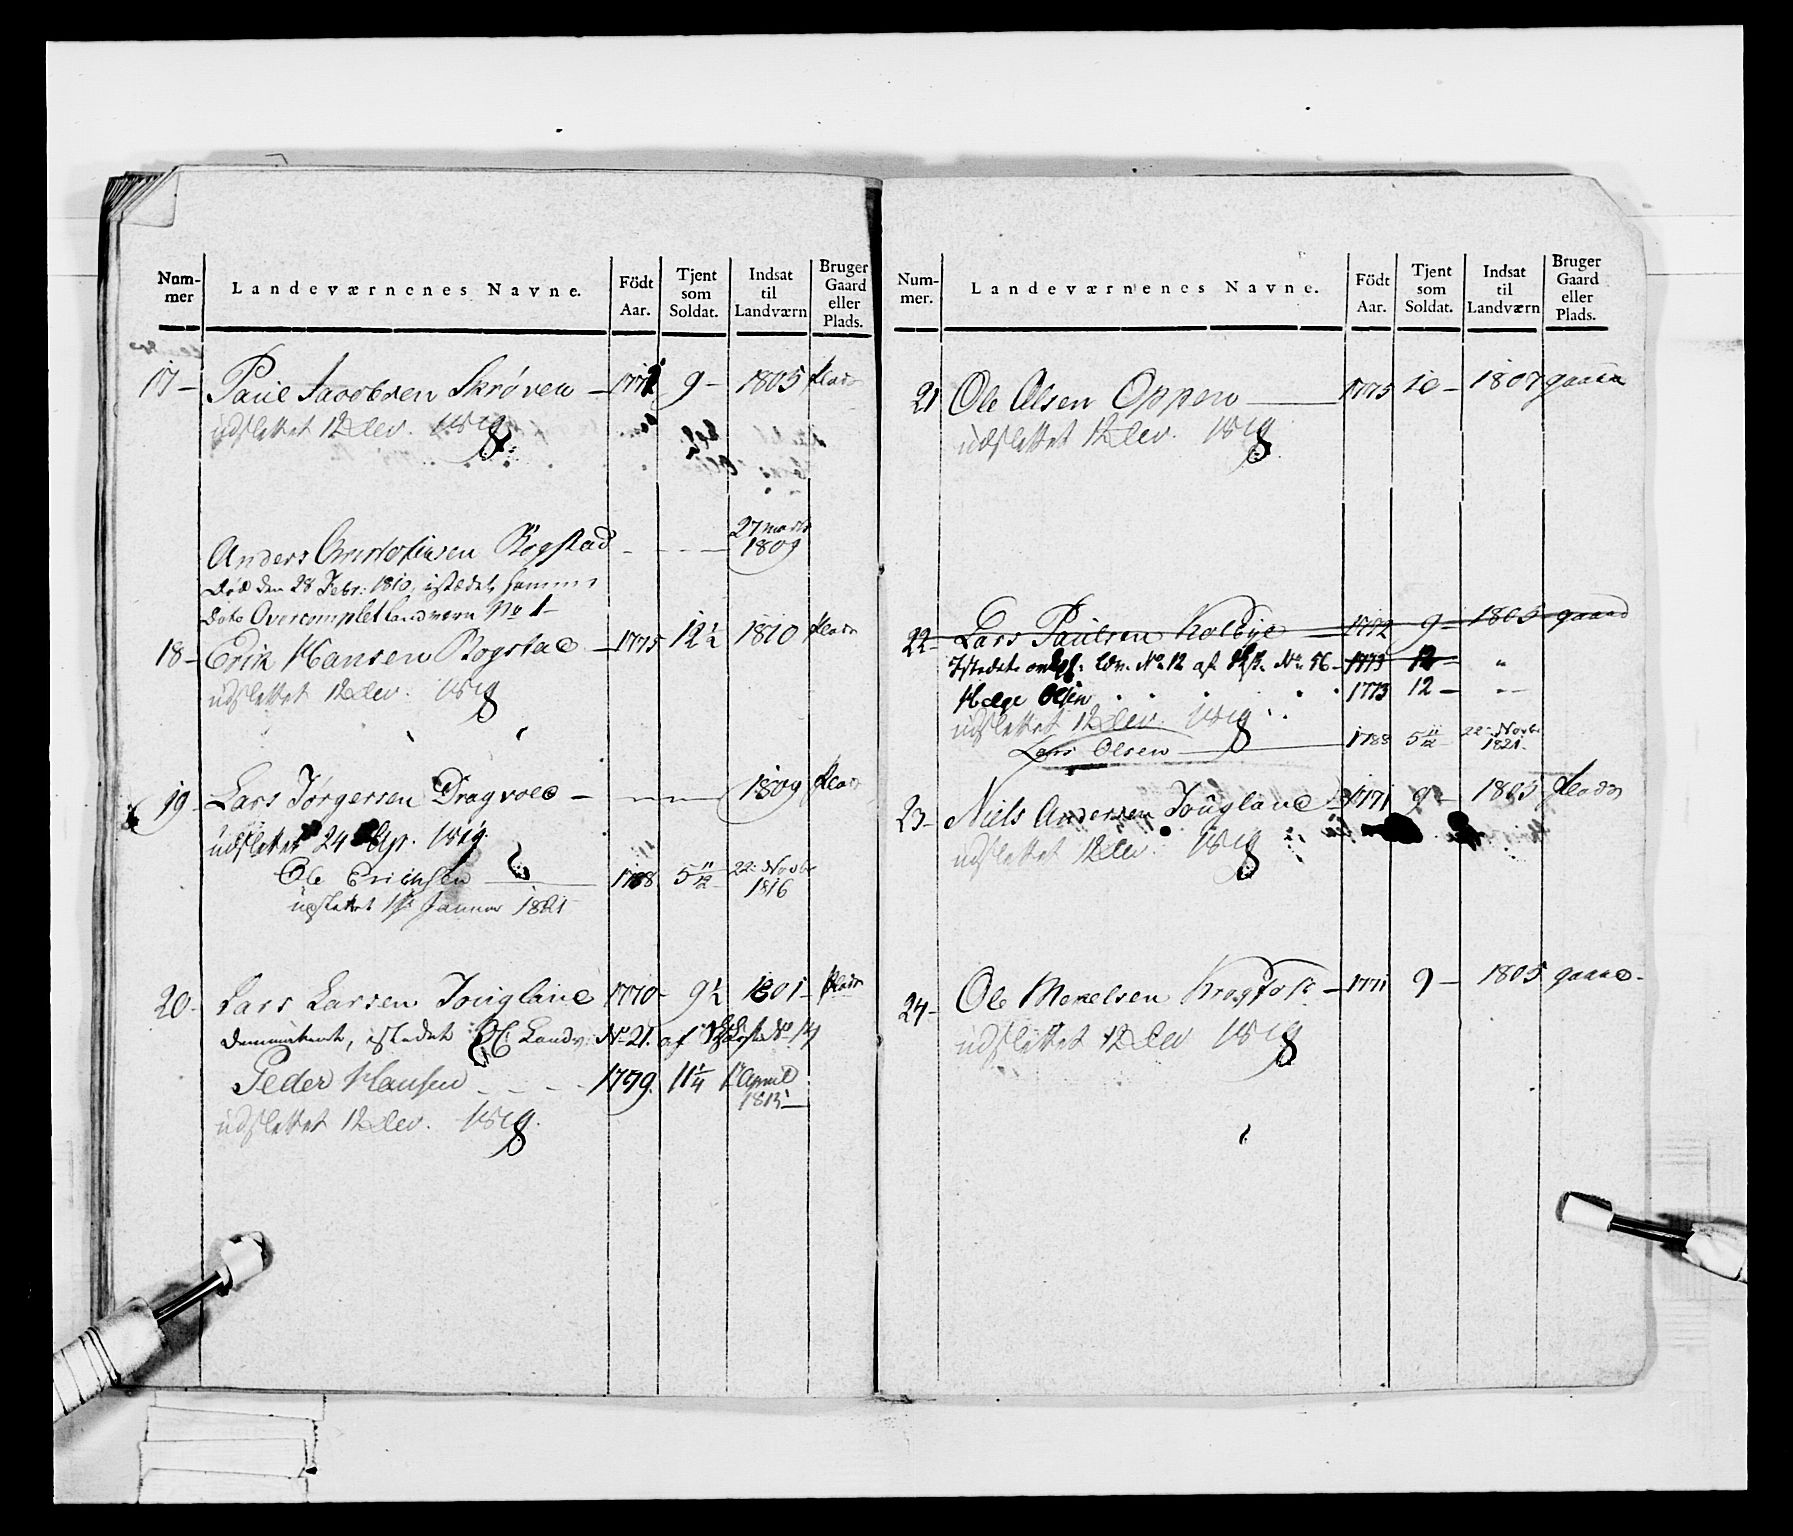 Num-
mer
Landeværnenes Navne.
Födt
Aar.
Tjent
som
Soldat.
Indsat
til
Landværn
Bruger
Gaard
eller
Plads.
17 – Paul Jacobsen Skrøven – 1772 9 – 1805 plads
udslettet 12 Dev. 1819
Anders Christophersen Rogstad - - - 27 marts 1809
Død den 28 Febr: 1810, istædet samme
Dato Overcomplet landværn No 1 –
18 – Erik Hansen Rogstad – 1775 12½ 1810 plads
udslettet 12 Dev. 1819
19 – Lars Jørgersen Dragvold – 1809 plads
udslettet 24 Sep. 1819
Ole Erichsen 1788 5 11/12 22 Novbr 1816
udslettet 1st Januar 1821
20 – Lars Larsen Jougland 1770 – 9½ 1801 – plads
istedet Landv: No 21. af No 14
Peder Hansen - - - 1779. 11¼ 1st April 1815 –
udslettet 12 Dev. 1819.
Num-
mer.
Landeværnenes Navne.
Födt
Aar.
Tjent
som
Soldat.
Indsat
til
Landværn
Bruger
Gaard
eller
Plads.
21 Ole Olsen Oppen 1775 10 – 1807 gaard
udslettet 12 Dev. 1819
22 – Lars Paulsen Kolbye 1772 9 – 1805 gaard
Istedet Ldv. No 12 af No 56 – 1773 12 – "
Helge Olsen 1773 12 – "
udslettet 12 Dev. 1819
Lars Olsen 1788 5 11/12 22 Novbr 1821.
23 – Niels Andersen Jougland 1771 9 – 1805 plads
udslettet 12 Dev. 1819
24 – Ole Mikkelsen – 1771 9 – 1805 gaard –
udslettet 12 Dev 1819